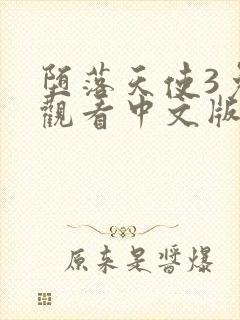 堕落天使3
觀看中文版
原来是醬爆